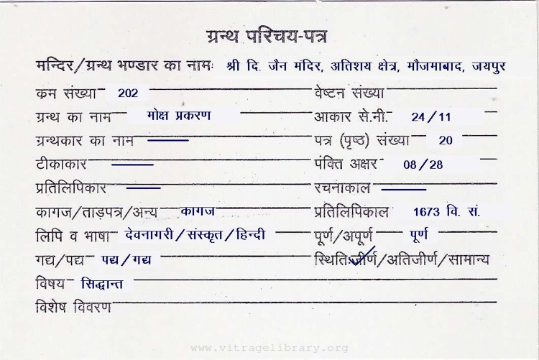 ग्रन्थ परिचय-पत्र
मन्दिर/ग्रन्थ भण्डार का नामः श्री दि. जैन मंदिर, अतिशय क्षेत्र, मौजमाबाद, जयपुर
कन संख्या 202 वेष्टन संख्या
ग्रन्थ का नाम मोक्ष प्रकरण आकार से.मी. 24/11
ग्रन्थकार का नाम — पत्र (पृष्ठ) संख्या 20
टीकाकार — पंक्ति अक्षर 08/28
प्रतिलिपिकार — रचनाकाल —
कागज/ताड़पत्र/अन्य कागज प्रतिलिपिकाल 1673 वि. सं.
लिपि व भाषा देवनागरी/संस्कृत/हिन्दी पूर्ण/अपूर्ण पूर्ण
गद्य/पद्य पद्य/गद्य स्थितिःजीर्ण/अतिजीर्ण/सामान्य
विषय सिद्धान्त
विशेष विवरण
www.vitragelibrary.org